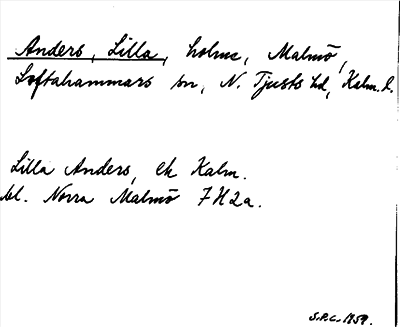 Anders, Lilla, holme, Malmö,
Loftahammars sn, N. Tjusts hd, Kalm. l.
Lilla Anders, ek Kalm.
bl. Norra Malmö 7H2a.
S.P.C. 1959.